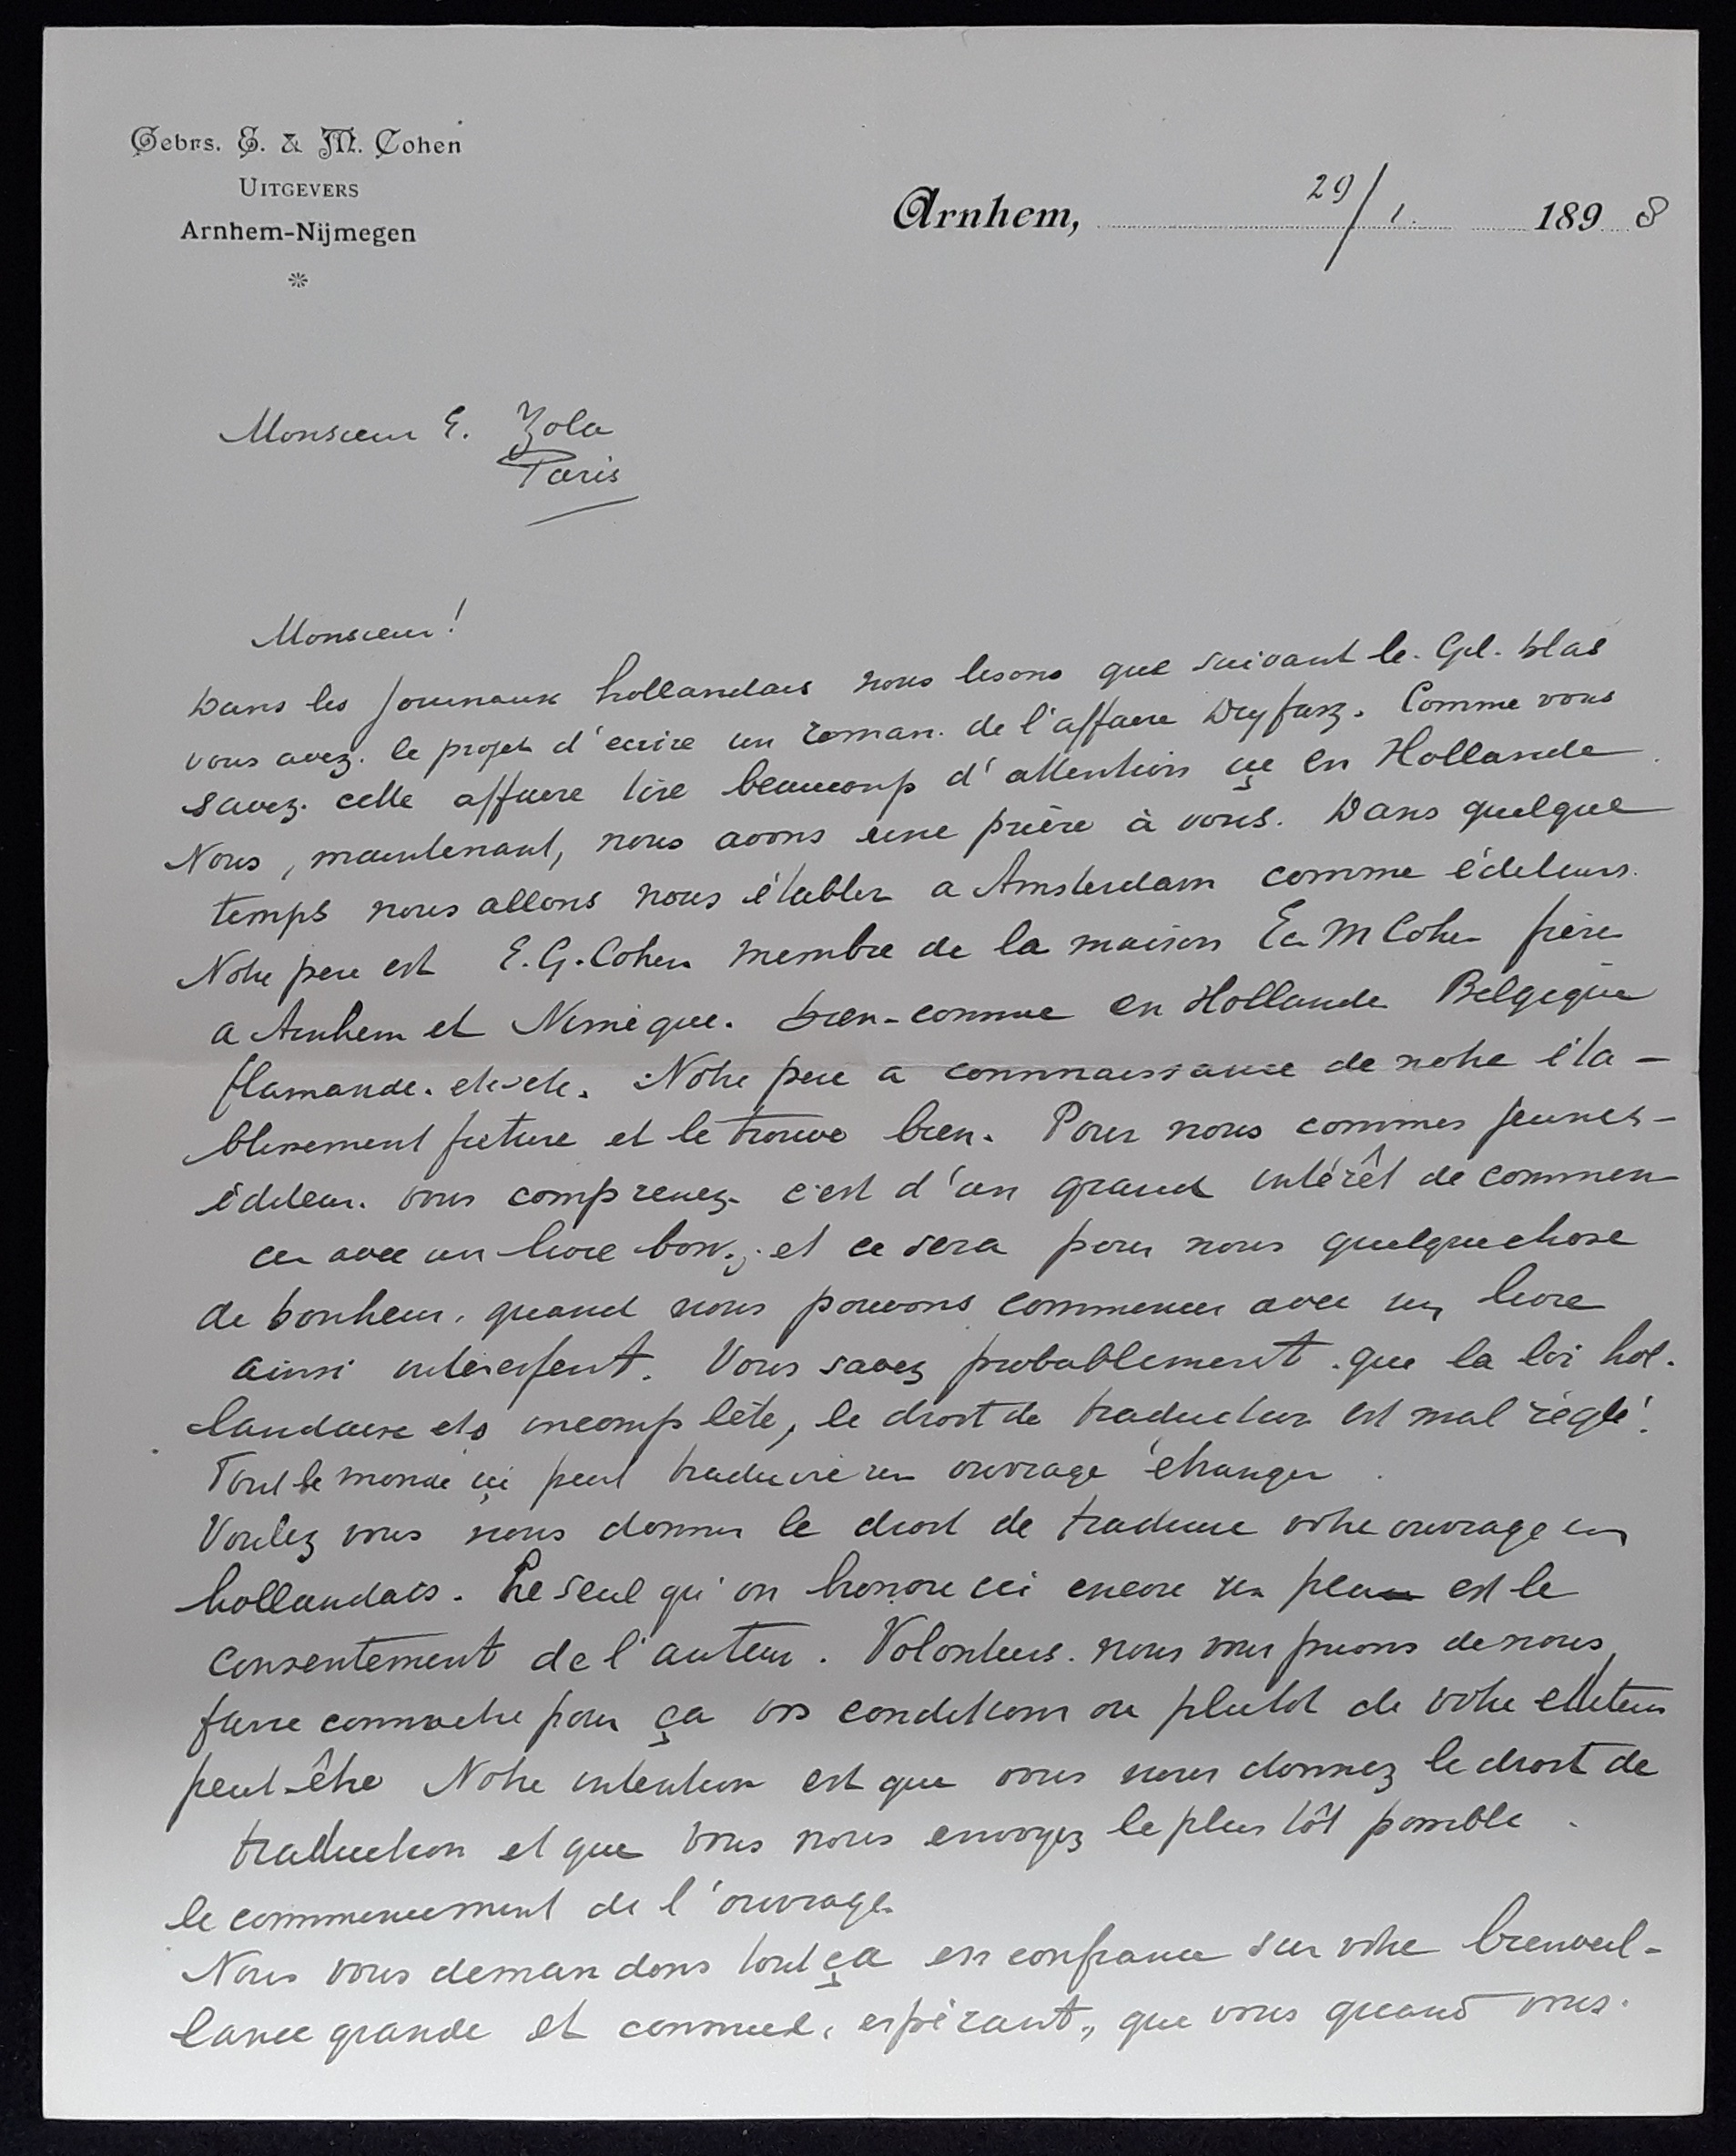 Gebrs. E. & M. Cohen
UITGEVERS
Arnhem-Nijmegen
Arnhem, 29/1. 1898
Monsieur E. Zola
Paris
Monsieur!
Dans les journaux hollandais nous lisons que suivant le Gil. blas
vous avez. le projet d'ecrire un roman. de l'affaire Dreyfusz. Comme vous
savez. cette affaire tire beaucoup d'attention içi en Hollande.
Nous, maintenant, nous avons une prière à vous. Dans quelque
temps nous allons nous établir a Amsterdam comme éditeurs.
Notre pere est E. G. Cohen membre de la maison E & M Cohen frère
a Arnhem et Nimègue. bien-connue en Hollande Belgique
flamande. etc etc. Notre pere a connnaissance de notre éta-
blissement future et le trouve bien. Pour nous commes jeunes-
éditeur. vous comprenez c'est d'un grand intérêt de commen-
cer avec un livre bon; et ce sera pour nous quelquechose
de bonheur, quand nous pouvons commencer avec un livre
ainsi intéressent. Vous savez probablement que la loi hol-
landaise ets incomplète, le droit de traducteur est mal réglé.
Tout le monde içi peut traduire un ouvrage étranger.
Voulez vous nous donner le droit de traduire votre ouvrage en
hollandais. Le seul qu'on honore ici encore un peu est le
consentement de l'auteur. Volontiers. nous vous prions de nous
faire connaitre pour ça vos conditions ou plutot de votre editeur
peut-être Notre intention est que vous nous donnez le droit de
traduction et que vous nous envoyez le plus tôt possible.
le commencement de l'ouvrage.
Nous vous demandons tout ça en confiance sur votre bienveil-
lance grande et connued, espérant, que vous quand vous.